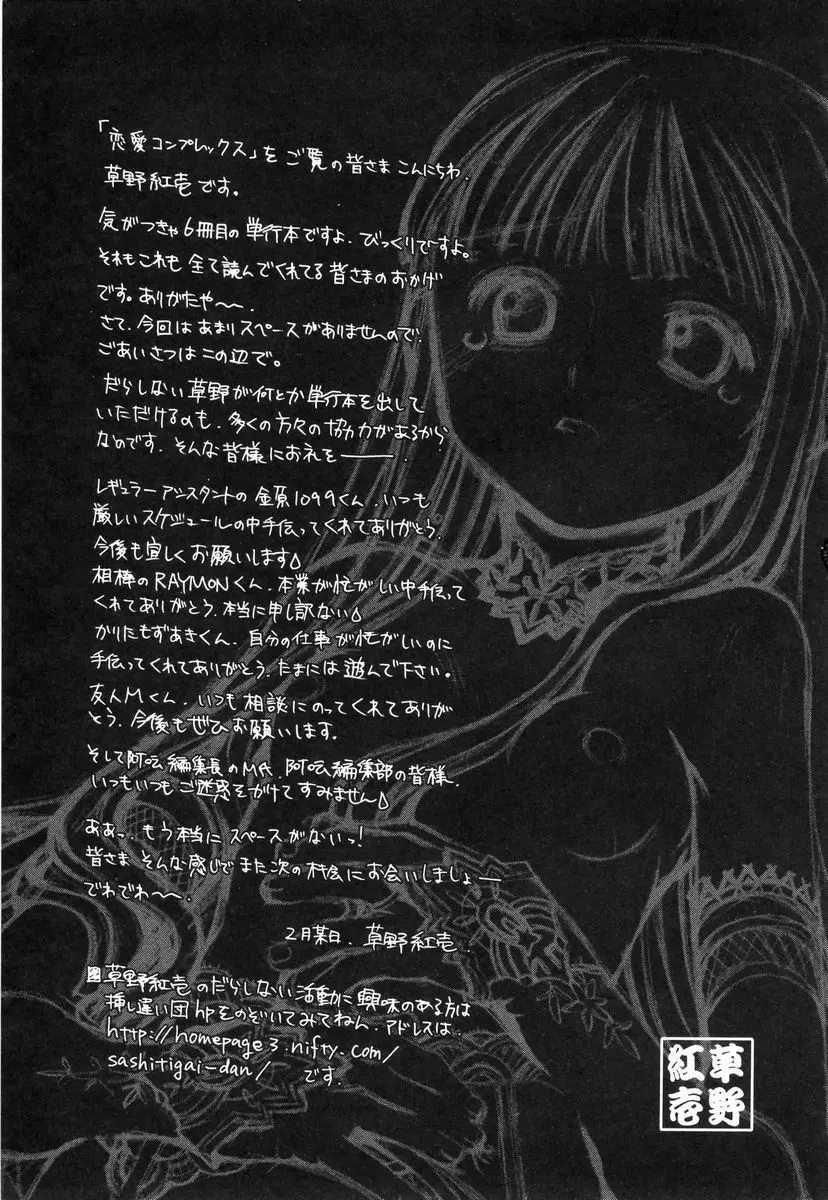 「恋愛コンプレックス」をご覧の皆さまこんにちわ.
草野紅壱です。
気がつきゃ6冊目の単行本ですよ.びっくりですよ。
それもこれも全て読んでくれてる皆さまのおかげ
です。ありがたや〜〜.
さて、今回はあまりスペースがありませんので、
ごあいさつはこの辺で。
だらしない草野が何とか単行本を出して
いただけるのも、多くの方々の協力があるから
なのです. そんな皆様にお礼を――――.
レギュラーアシスタントの金原1099くん.いつも
厳しいスケジュールの中手伝ってくれてありがとう.
今後も宜しくお願いします△
相棒のRAYMONくん、本業が忙がしい中手伝って
くれてありがとう.本当に申し訳ない△
かりたもずあきくん、自分の仕事が忙がしいのに
手伝ってくれてありがとう.たまには遊んで下さい。
友人Mくん、いつも相談にのってくれてありが
とう.今後もぜひお願いします.
そして阿吽編集長のM氏.阿吽編集部の皆様.
いつもいつもご迷惑をかけてすみません△
ああっ.もう本当にスペースがないっ!
皆さまそんな感じでまた次の機会にお会いしましょー
でわでわ〜〜.
2月某日、草野紅壱.
草野紅壱のだらしない活動に興味のある方は
挿し違い団hpをのぞいてみてねん.アドレスは.
http://homepage3.nifty.com/
sashitigai-dan/ です.
草野
紅壱